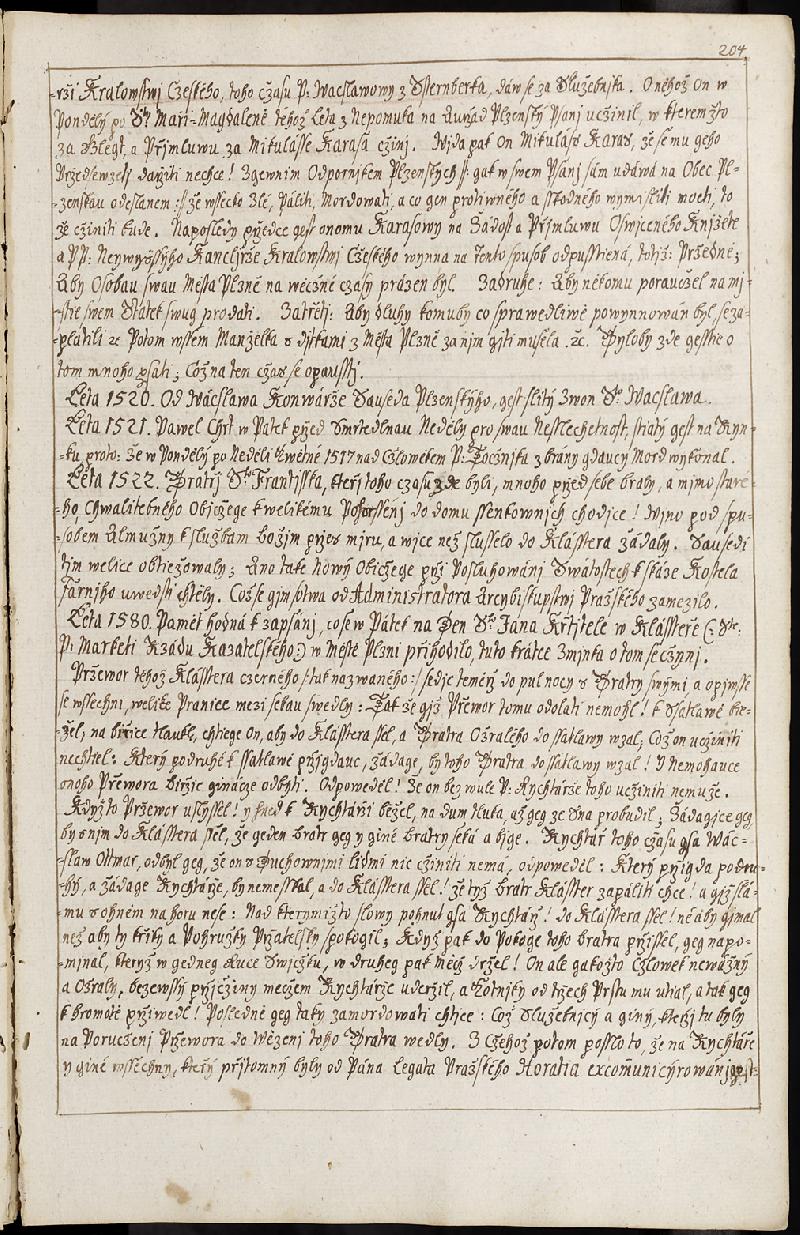 204
-rži Kralowstwj Czeského, toho cžasu P: Waczlawowy z Sternberka, dáw se za Služebnjka. O něhož on w
Pondělý po St. Maři-Magdaleně téhož Léta z Nepomuka na Auržad Plzenský Psanj učzinil, w kterémžto
za Glegt, a Přjmluwu za Mikulásse Karasa cžinj. Nýja pak on Mikuláss Karas, že se mu geho
Předsewzetj dařiti nechce! Zgewnim Odpornjkem Plzenských /: gak w swem Psanj sám udáwá na Obec Pl-
-zenskau odeslanem :/ že wssecko Zlé, páliti, Mordowati, a co gen protiwného a sskodného wymysliti moci, to
že cžiniti bude. Naposledy pržedce gest onomu Karasowy na Žadost a Přjmluwu Oswjceného Knjžete
a PP: Neywyžssýho Kancljrže Kralowstwj Cžeského wynna na tento spusob odpusstiená, totiž: Pržedně;
Aby Osobau swau Města Plzně na wěcžné cžasy prázen byl. Zadruhé: Aby někomu poraucžel na mj-
-stě swém Statek swug prodati. Zatřetj: Aby dluhy komuby co sprawedliwě powynnowán byl, se za-
-platili ꝛc Potom wssem Manželka s djtkami z Města Plzně za njm gjti musela. ꝛc. Byloby zde gesstie o
tom mnoho psáti; Což na ten cžas se opausstj.
Léta 1520. Od Wácslawa Konwárže Sauseda Plzenskýho, gest slitý Zwon St. Wacslawa.
Léta 1521. Pawel Chrt w Pátek pržed Smrtedlnau Nedělý pro swau Nesslechetnost, stiatý gest na Ryn-
-ku proto: že w Pondělý po Neděli Kwětné 1517 nad Cžlowěkem P: Točnjka z brany gdaucý Mord wykonal.
Léta 1522. Bratřj St. Frantisska, kteřj toho cžasu zde byli, mnoho pržed sebe braly, a mjmo staré-
-ho, Chwalitebného Obicžege k welikému Pohorssenj do domu ssenkownjch chodjce! Wjno pod spu-
-sobem Almužny k službam božjm pržes mjru, a wjce než slusselo do Klásstera žádaly. Sausedi
tjm welice obtiežowaly; Ano také nowý Obicžege prži Posluhowánj Swátostech k skáze Kostela
Farnjho uwesti chtěly. Což se gim sotwa od Administratora Arcybiskupstwj Pražského zamezilo.
Léta 1580. Paměť hodná k zapsánj, co se w Pátek na Den St. Jana Křtjtele w Klássteře (: Ste:
P: Markéti Rzádu Kazatelského:) w Městě Plzni prihodilo, tuto krátce Zmjnka o tom se cžynj.
Pržewor téhož Klásstera czerného /: tak nazwaného :/ sedje teměrž do pul nocy s Bratry swými, a opjwsse
se wssechni, weliké Pranice mezi sebau swedly: Tak že giž Pržewor tomu odolati nemohl! k Ssatlawě bie-
-žel, na biřice tlaukl, chtiege on, aby do Klásstera ssel, a Bratra Ožralého do ssatlawy wzal; Což on ucžiniti
nechtiel: Který podruhé k ssatlawě pržigdauc, žádage, by toho Bratra do ssatlawy wzal! Y Nemohauce
onoho Přewora biržic gináčge odbyti. Odpowěděl! Že on bez wule P: Rychtárže toho ucžiniti nemuže.
Když to Pržewor uslyssel! y hned k Rychtáři běžel, na dum tluka, až geg ze Sna probudil; Žádagjce geg
by s njm do Klásstera ssel, že geden bratr geg y giné bratry seká a bige. Rychtář toho cžasu gsa Wác-
-slaw Ottmar, odbyl geg, že on s Duchownjmi lidmi nic cžiniti nemá, odpowěděl: Který prjgda podru-
-hý, a žádage Rychtárže, by nemesskal, a do Klásstera ssel! že týž bratr Klásster zapáliti chce! a giž slá-
-mu s ohněm nahoru nese: Nad kterymižto slowy pohnut gsa Rychtárž! do Klásstera ssel! ně aby gjmal
než aby ty kržiky a Pohružky Pržatelsky spokogil; Když pak do Pokoge toho bratra pržissel, geg napo-
-mjnal, kterýž w gedneg Ruce Swjcžku, w druheg pak Mecž držel! On ale gakožto Cžlowěk newážný
a Ožralý, bezewssý prjcžiny mecžem Rychtárže uderžil, a Kotnjky od tržech Prstu mu utial, a tak geg
k hromotě prjwedl! Posledně geg taky zamordowati chtice: Což Služebnjcý a giný, kterýž tu byly
na Porucženj Pržewora do Wězenj toho Bratra wedly. Z Cžehož potom posslo to, že na Rychtárže
y giné wssěchny, kterýž prjtomný byly od Pána Legata Pražského Horatia excomunicýrowanj gest-